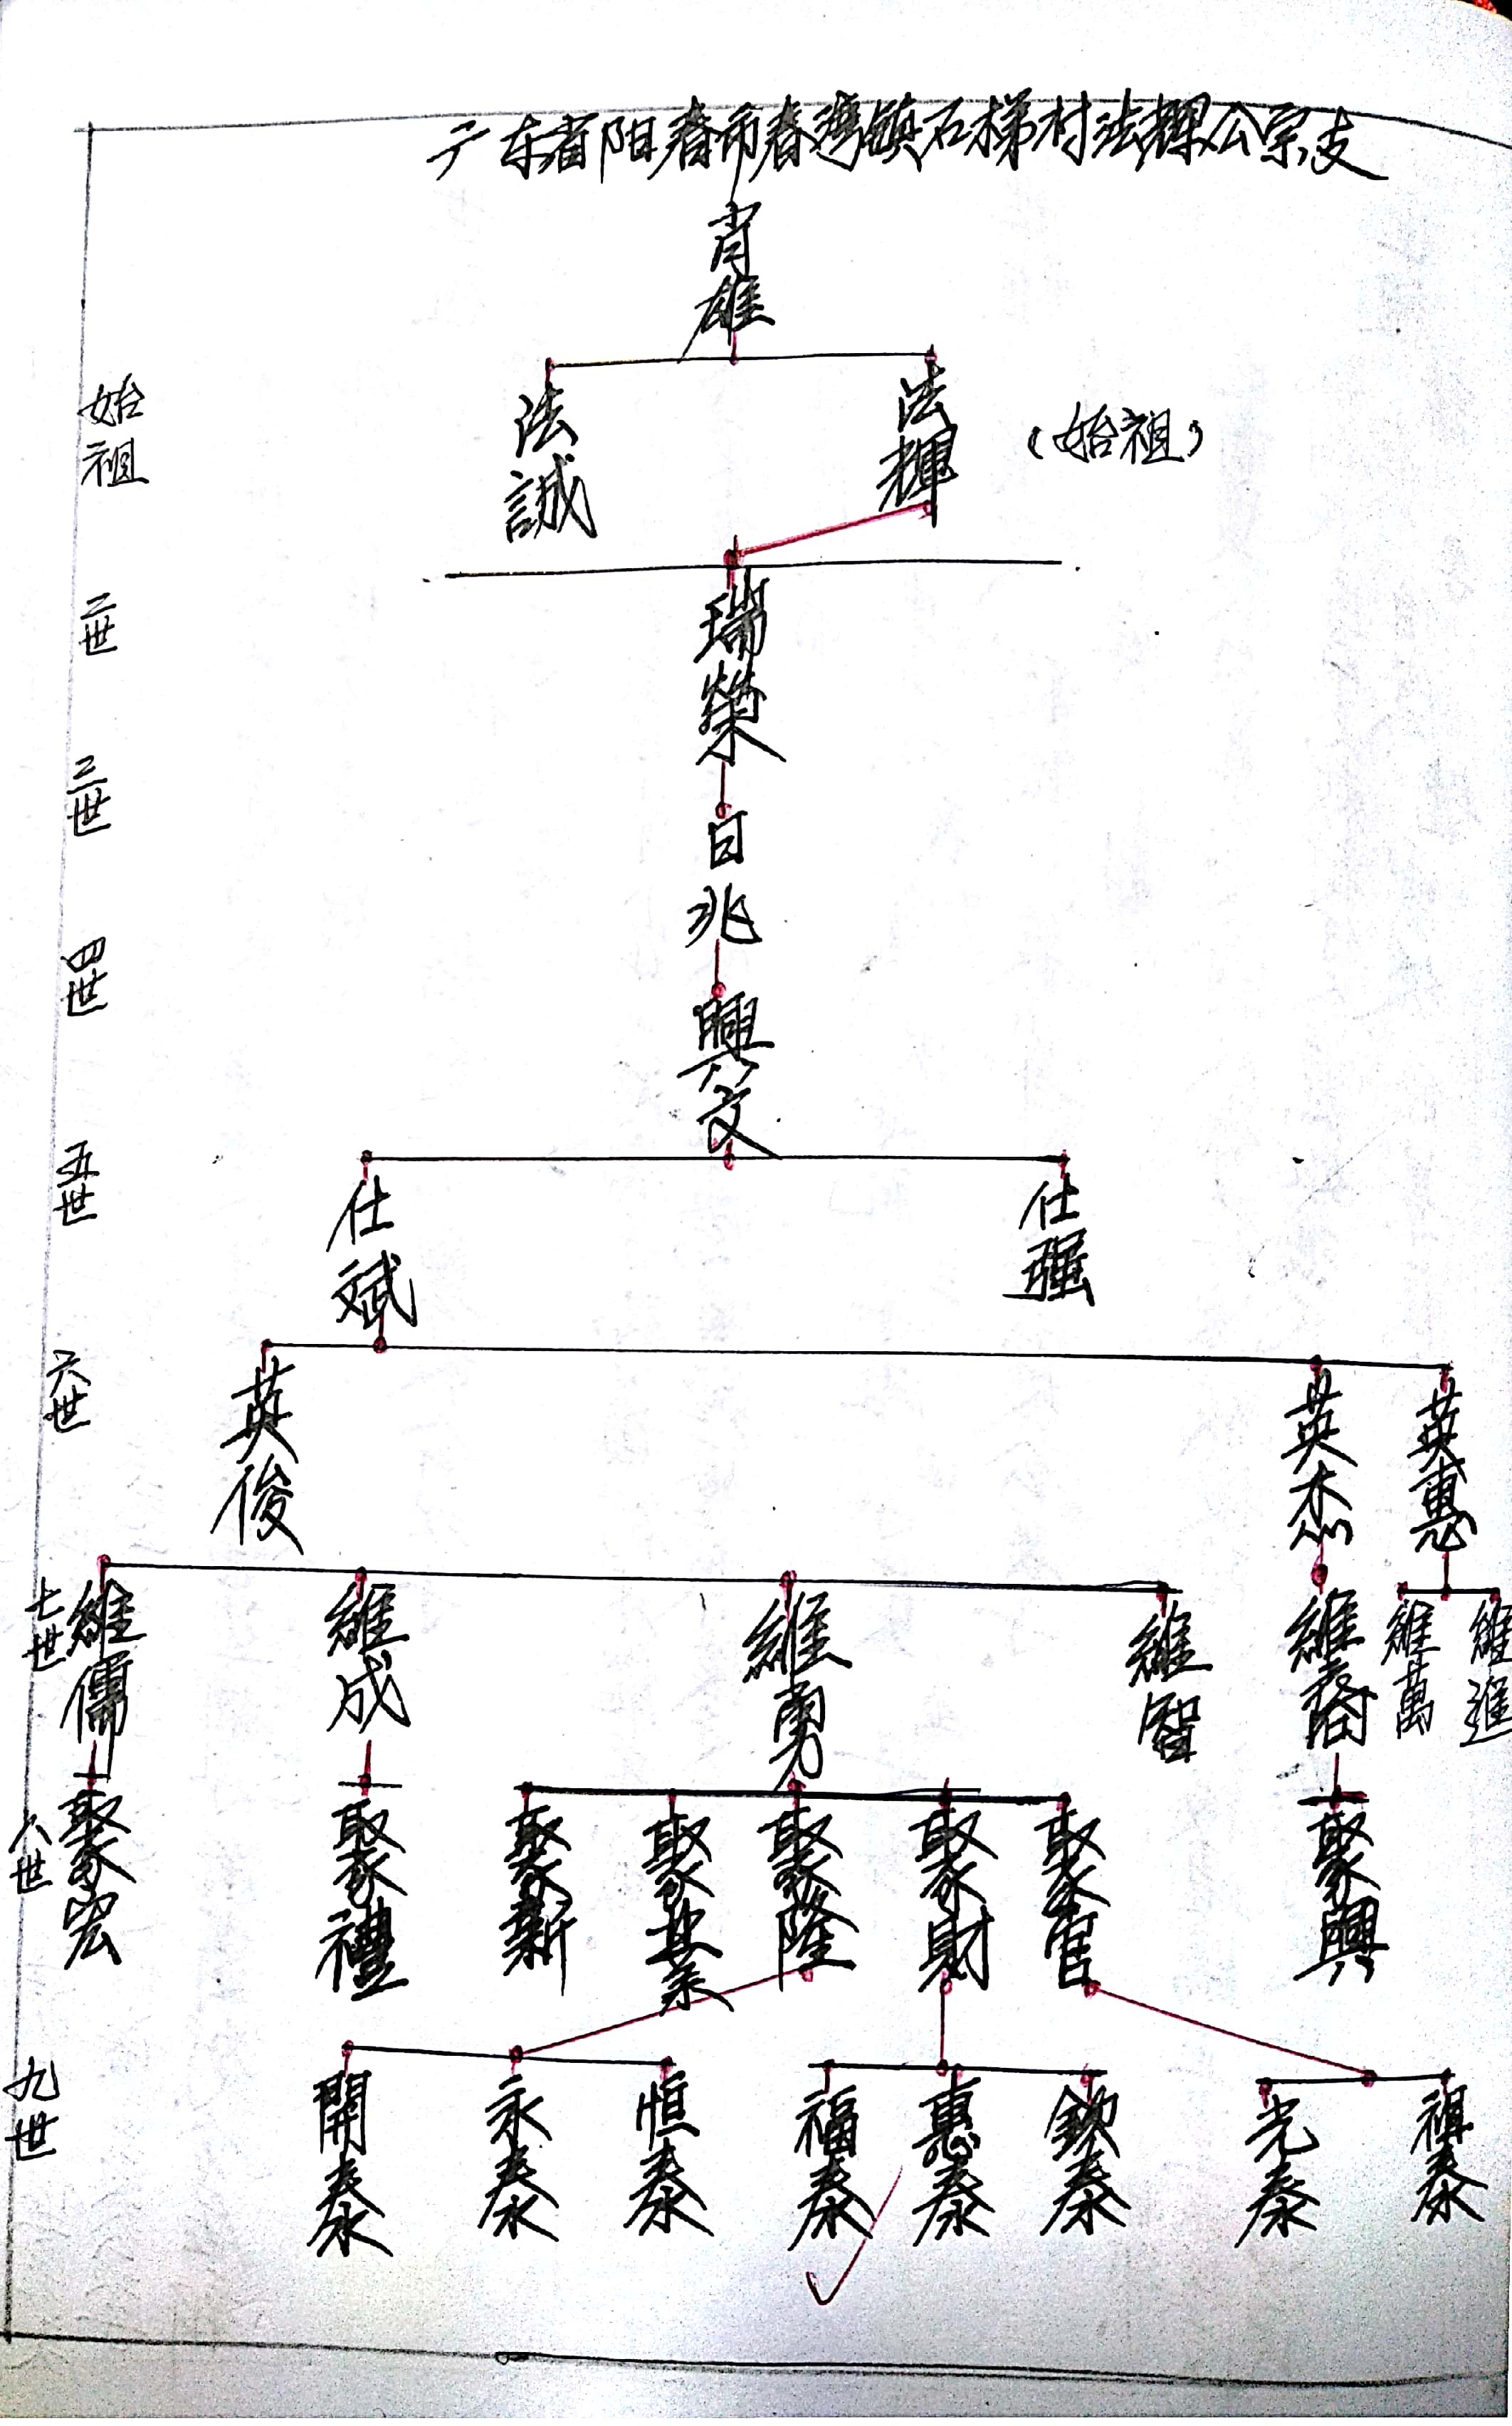 广东省阳春市春湾镇石梯村法輝公宗支
肖雄
始祖
法誠
法輝
(始祖)
二世
瑞榮
三世
日兆
四世
興文
五世
仕斌
仕强
六世
英俊
英杰
英惠
七世
維儒
維成
維勇
維智
維裔
維萬
維進
八世
聚宏
聚禮
聚新
聚業
聚隆
聚財
聚官
聚興
九世
開泰
永泰
恒泰
福泰
惠泰
欽泰
光泰
祖泰